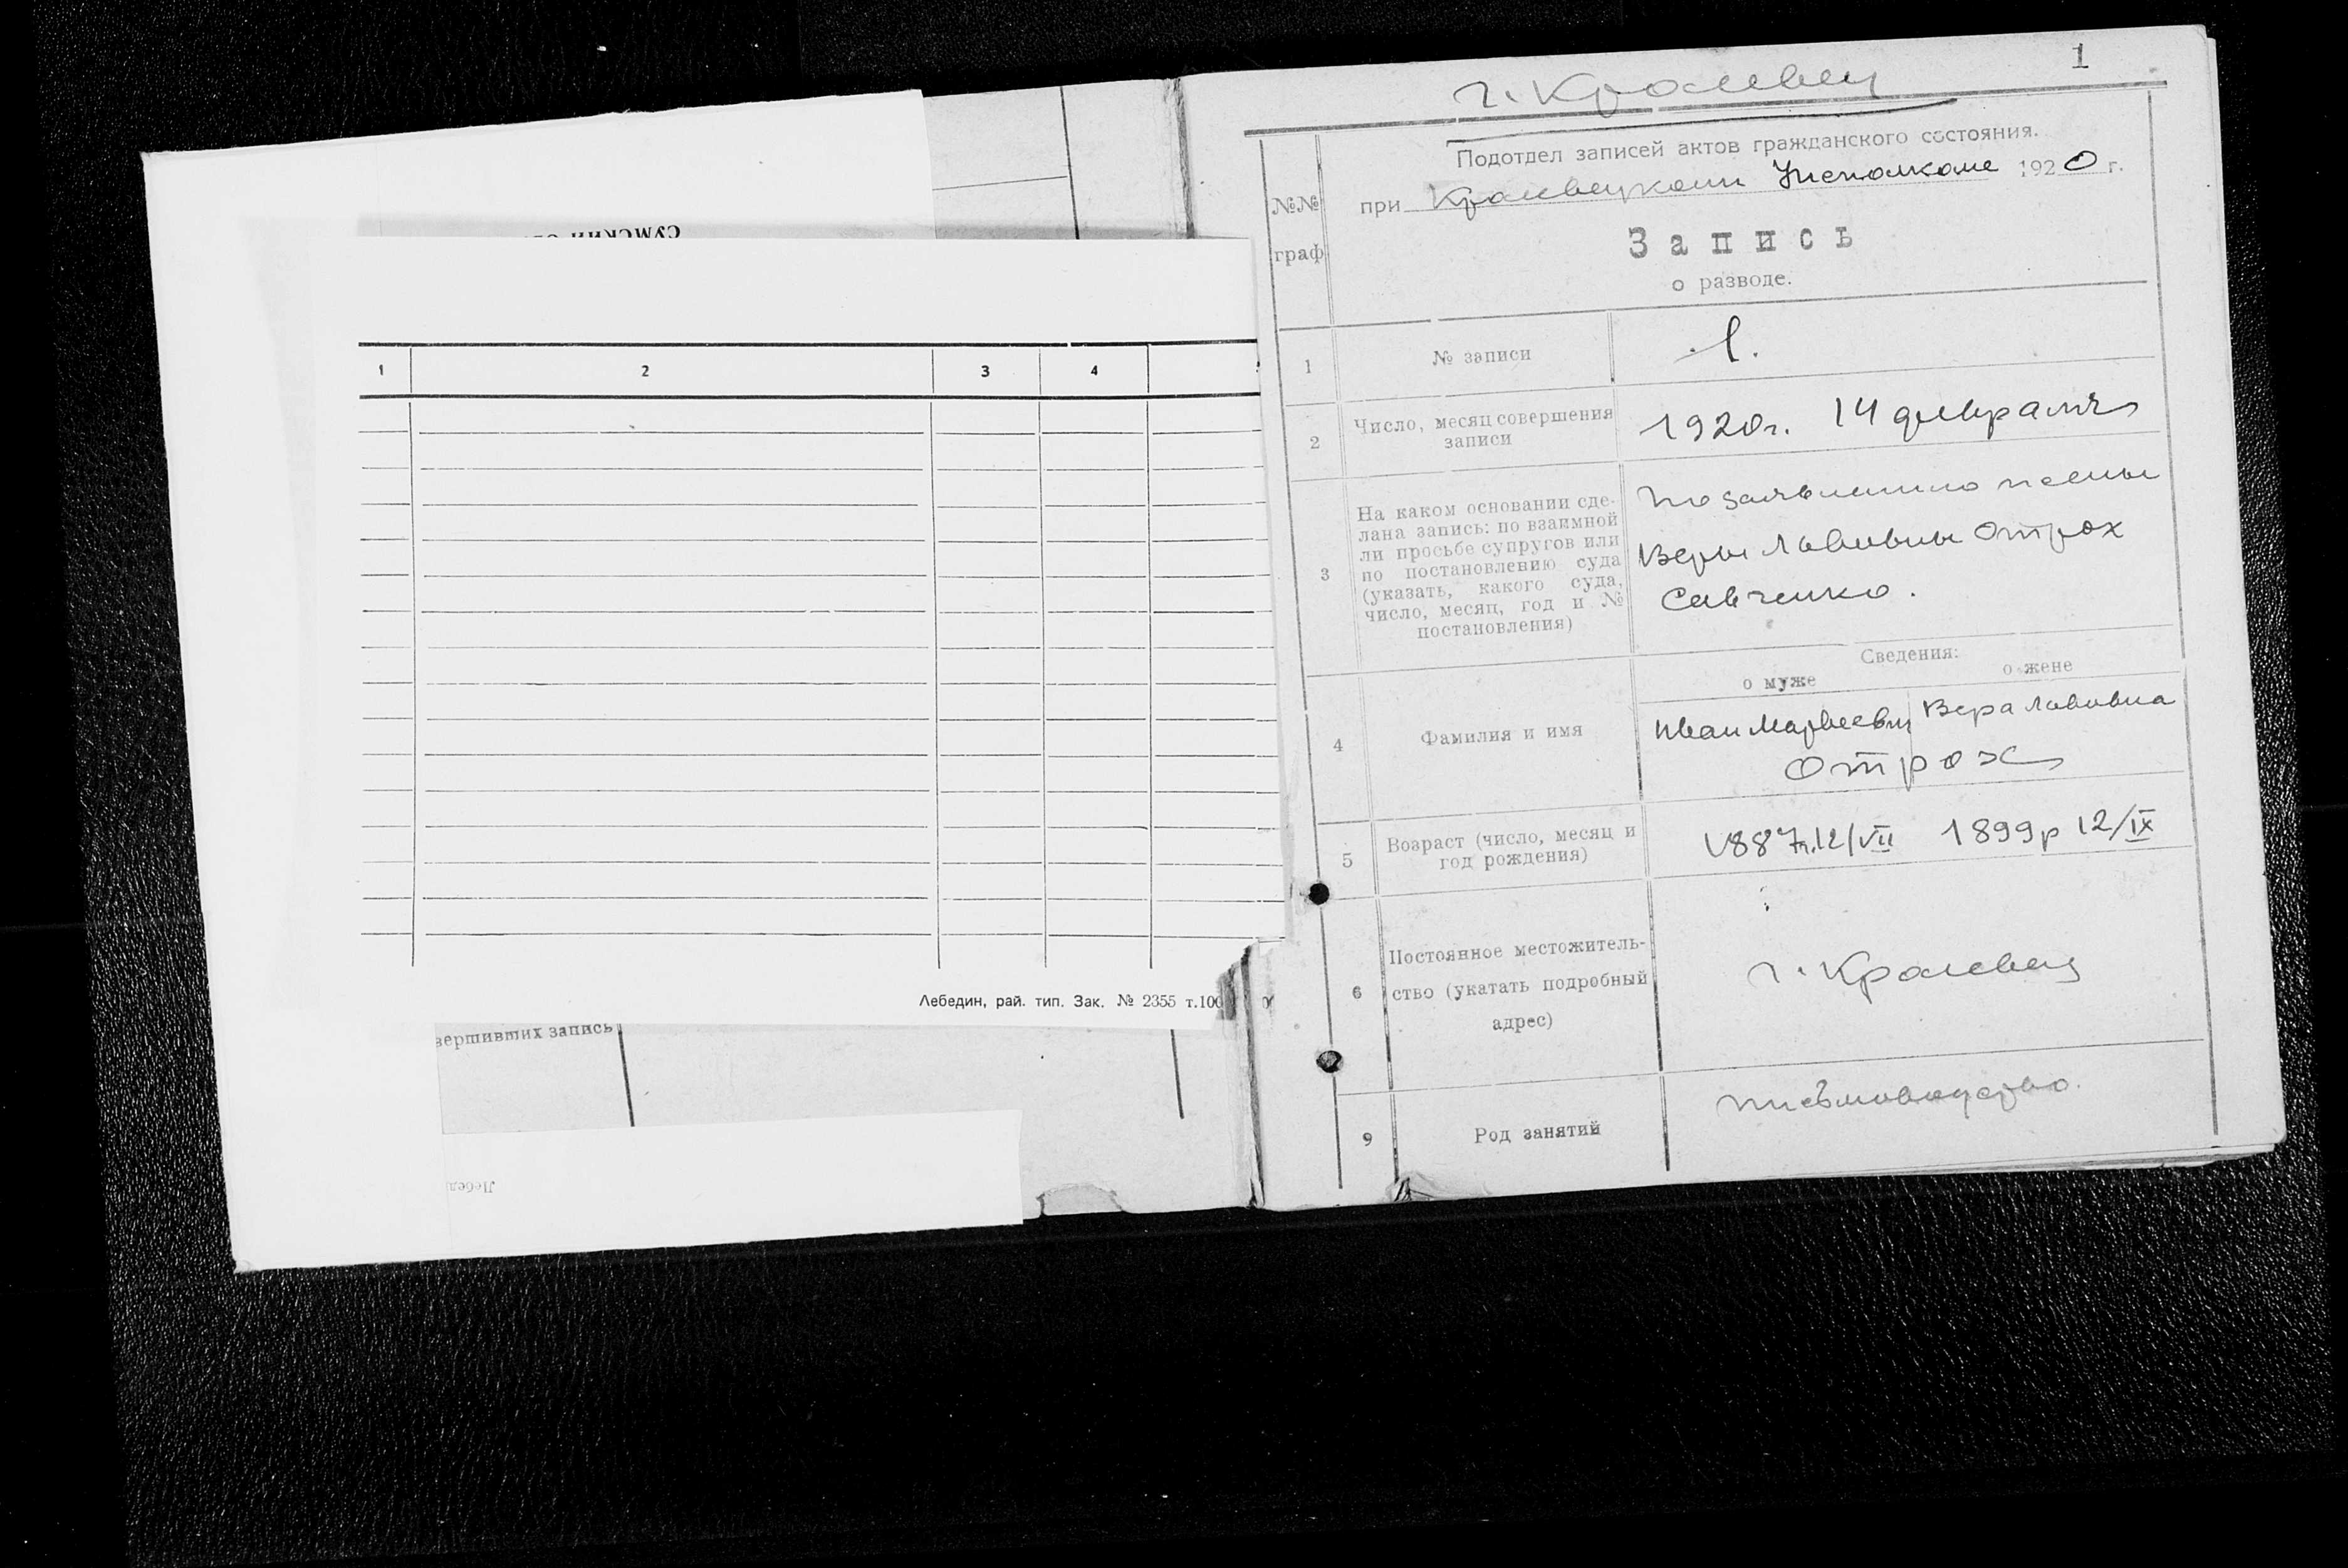 СУМСКИЙ
1 2 3 4
Лебедин, рай. тип. Зак. № 2355 т.100
вершивших запись
Лебед
1
г. Кролевец
Подотдел записей актов гражданского состояния.
при Кролевецком Исполкоме 1920 г.
№№ граф
Запись
о разводе.
1 № записи 1.
2 Число, месяц совершения
записи
1920г. 14 февраля
3 На каком основании сде-
лана запись: по взаимной
ли просьбе супругов или
по постановлению суда
(указать, какого суда,
число, месяц, год и №
постановления)
по заявлению жены
Веры Львовны Отрох
Савченко.
Сведения:
о муже о жене
4 Фамилия и имя
Иван Матвеевич Вера Львовна
Отрох
5 Возраст (число, месяц и
год рождения)
1887г.12/VII 1899р 12/IX
6 Постоянное местожитель-
ство (укатать подробный
адрес)
г. Кролевец
9 Род занятий
письмоводство.